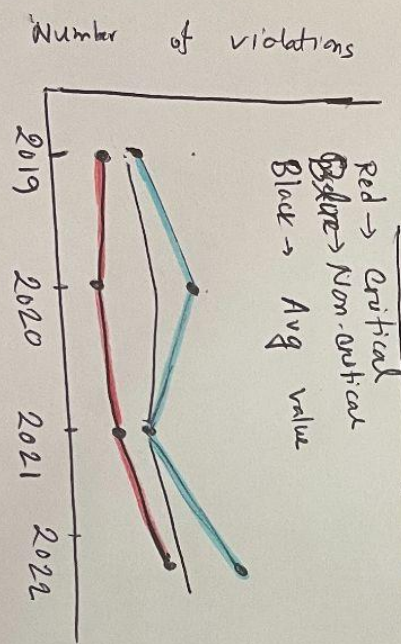 Number of violations
Red → Critical
Blue → Non-critical
Black → Avg value
2019 2020 2021 2022